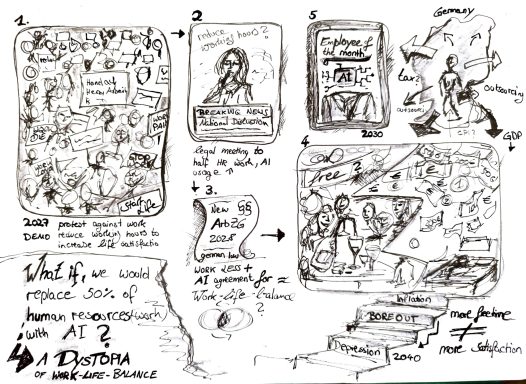 1.
STOP
StarLife
2027 protest against work
DEMO reduce working hours to
increase life satisfactio
2.
reduce
working hours?
BREAKING NEWS
National Disruption
legal meeting to
half HR work, AI
usage ↑
3.
New §§
ArbZG
2028
german law
WORK LESS +
AI agreement for =
Work-life-balance
?
5
Employee of
the month
AI
2030
Germany
tax?
outsourcing
GDP ↓
4
free?
Inflation
BOREOUT
Depression
2040
more freetime
≠
more satisfaction
What if, we would
replace 50% of
human resources/work
with AI?
A DYSTOPIA
OF WORK-LIFE-BALANCE